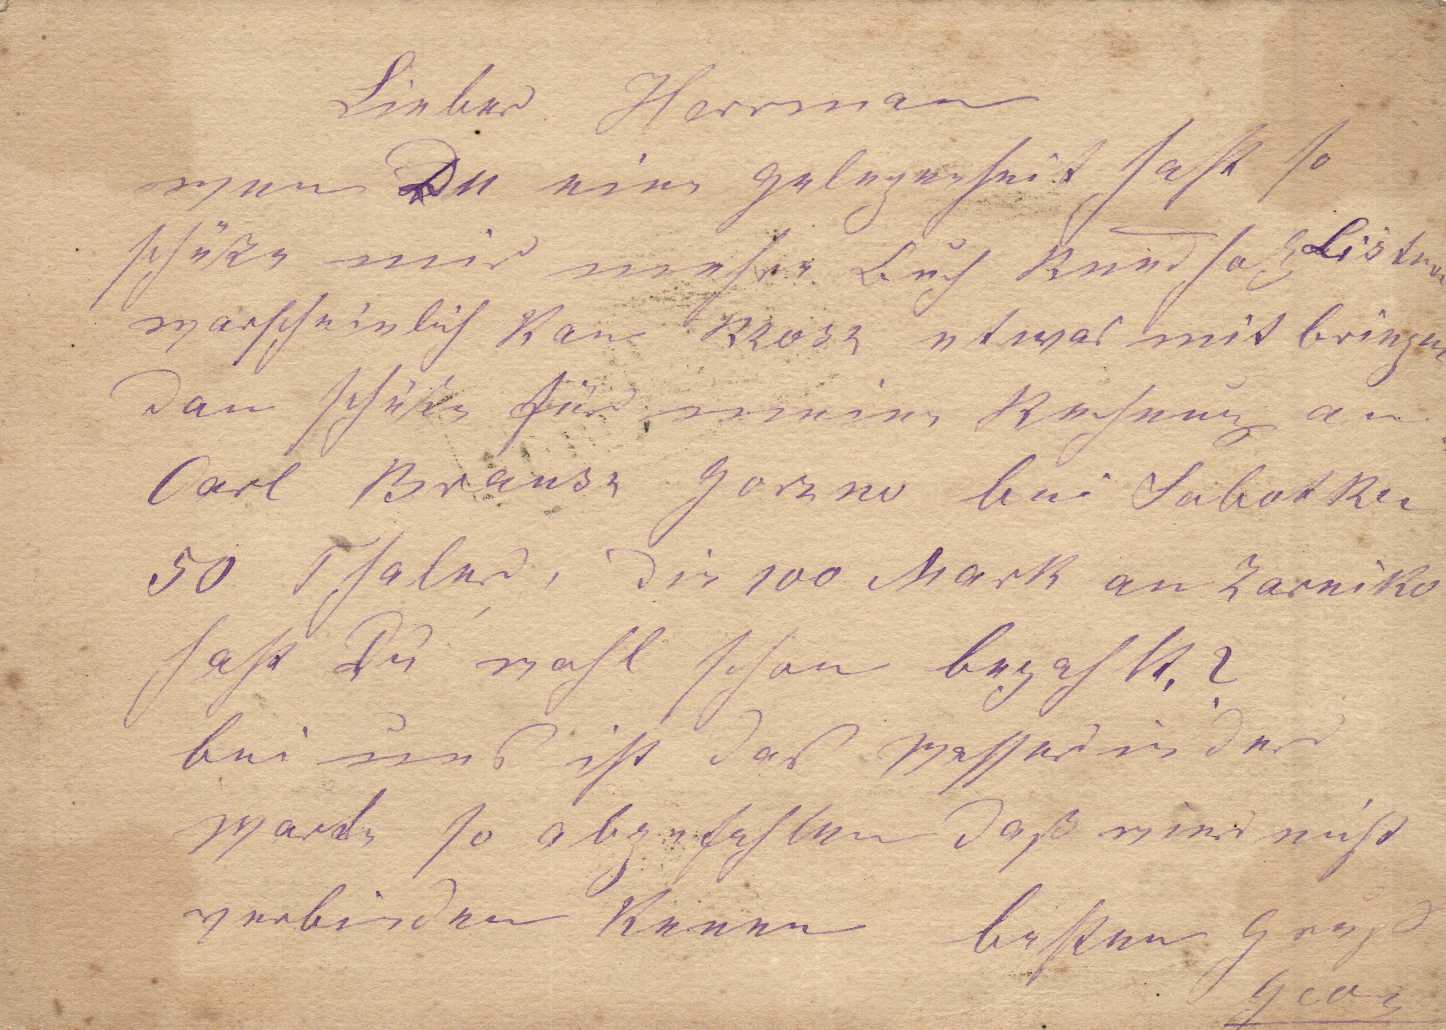 Lieber Herrman
wen Du eine gelegenheit hast so
schüke mir mehre Buch Rundholz Listen
warscheinlich Kan Klose etwas mit bringen
dan schüke für meine Rechnung an
Carl Brause Gorzno bei Sobotka
50 Thaler, die 100 Mark an Zarniko
hast Du wohl schon bezahlt,?
bei uns ist das Wasser in der
Warte so abgefahlen daß wier nicht
verbinden Kenen besten Gruß
Georg